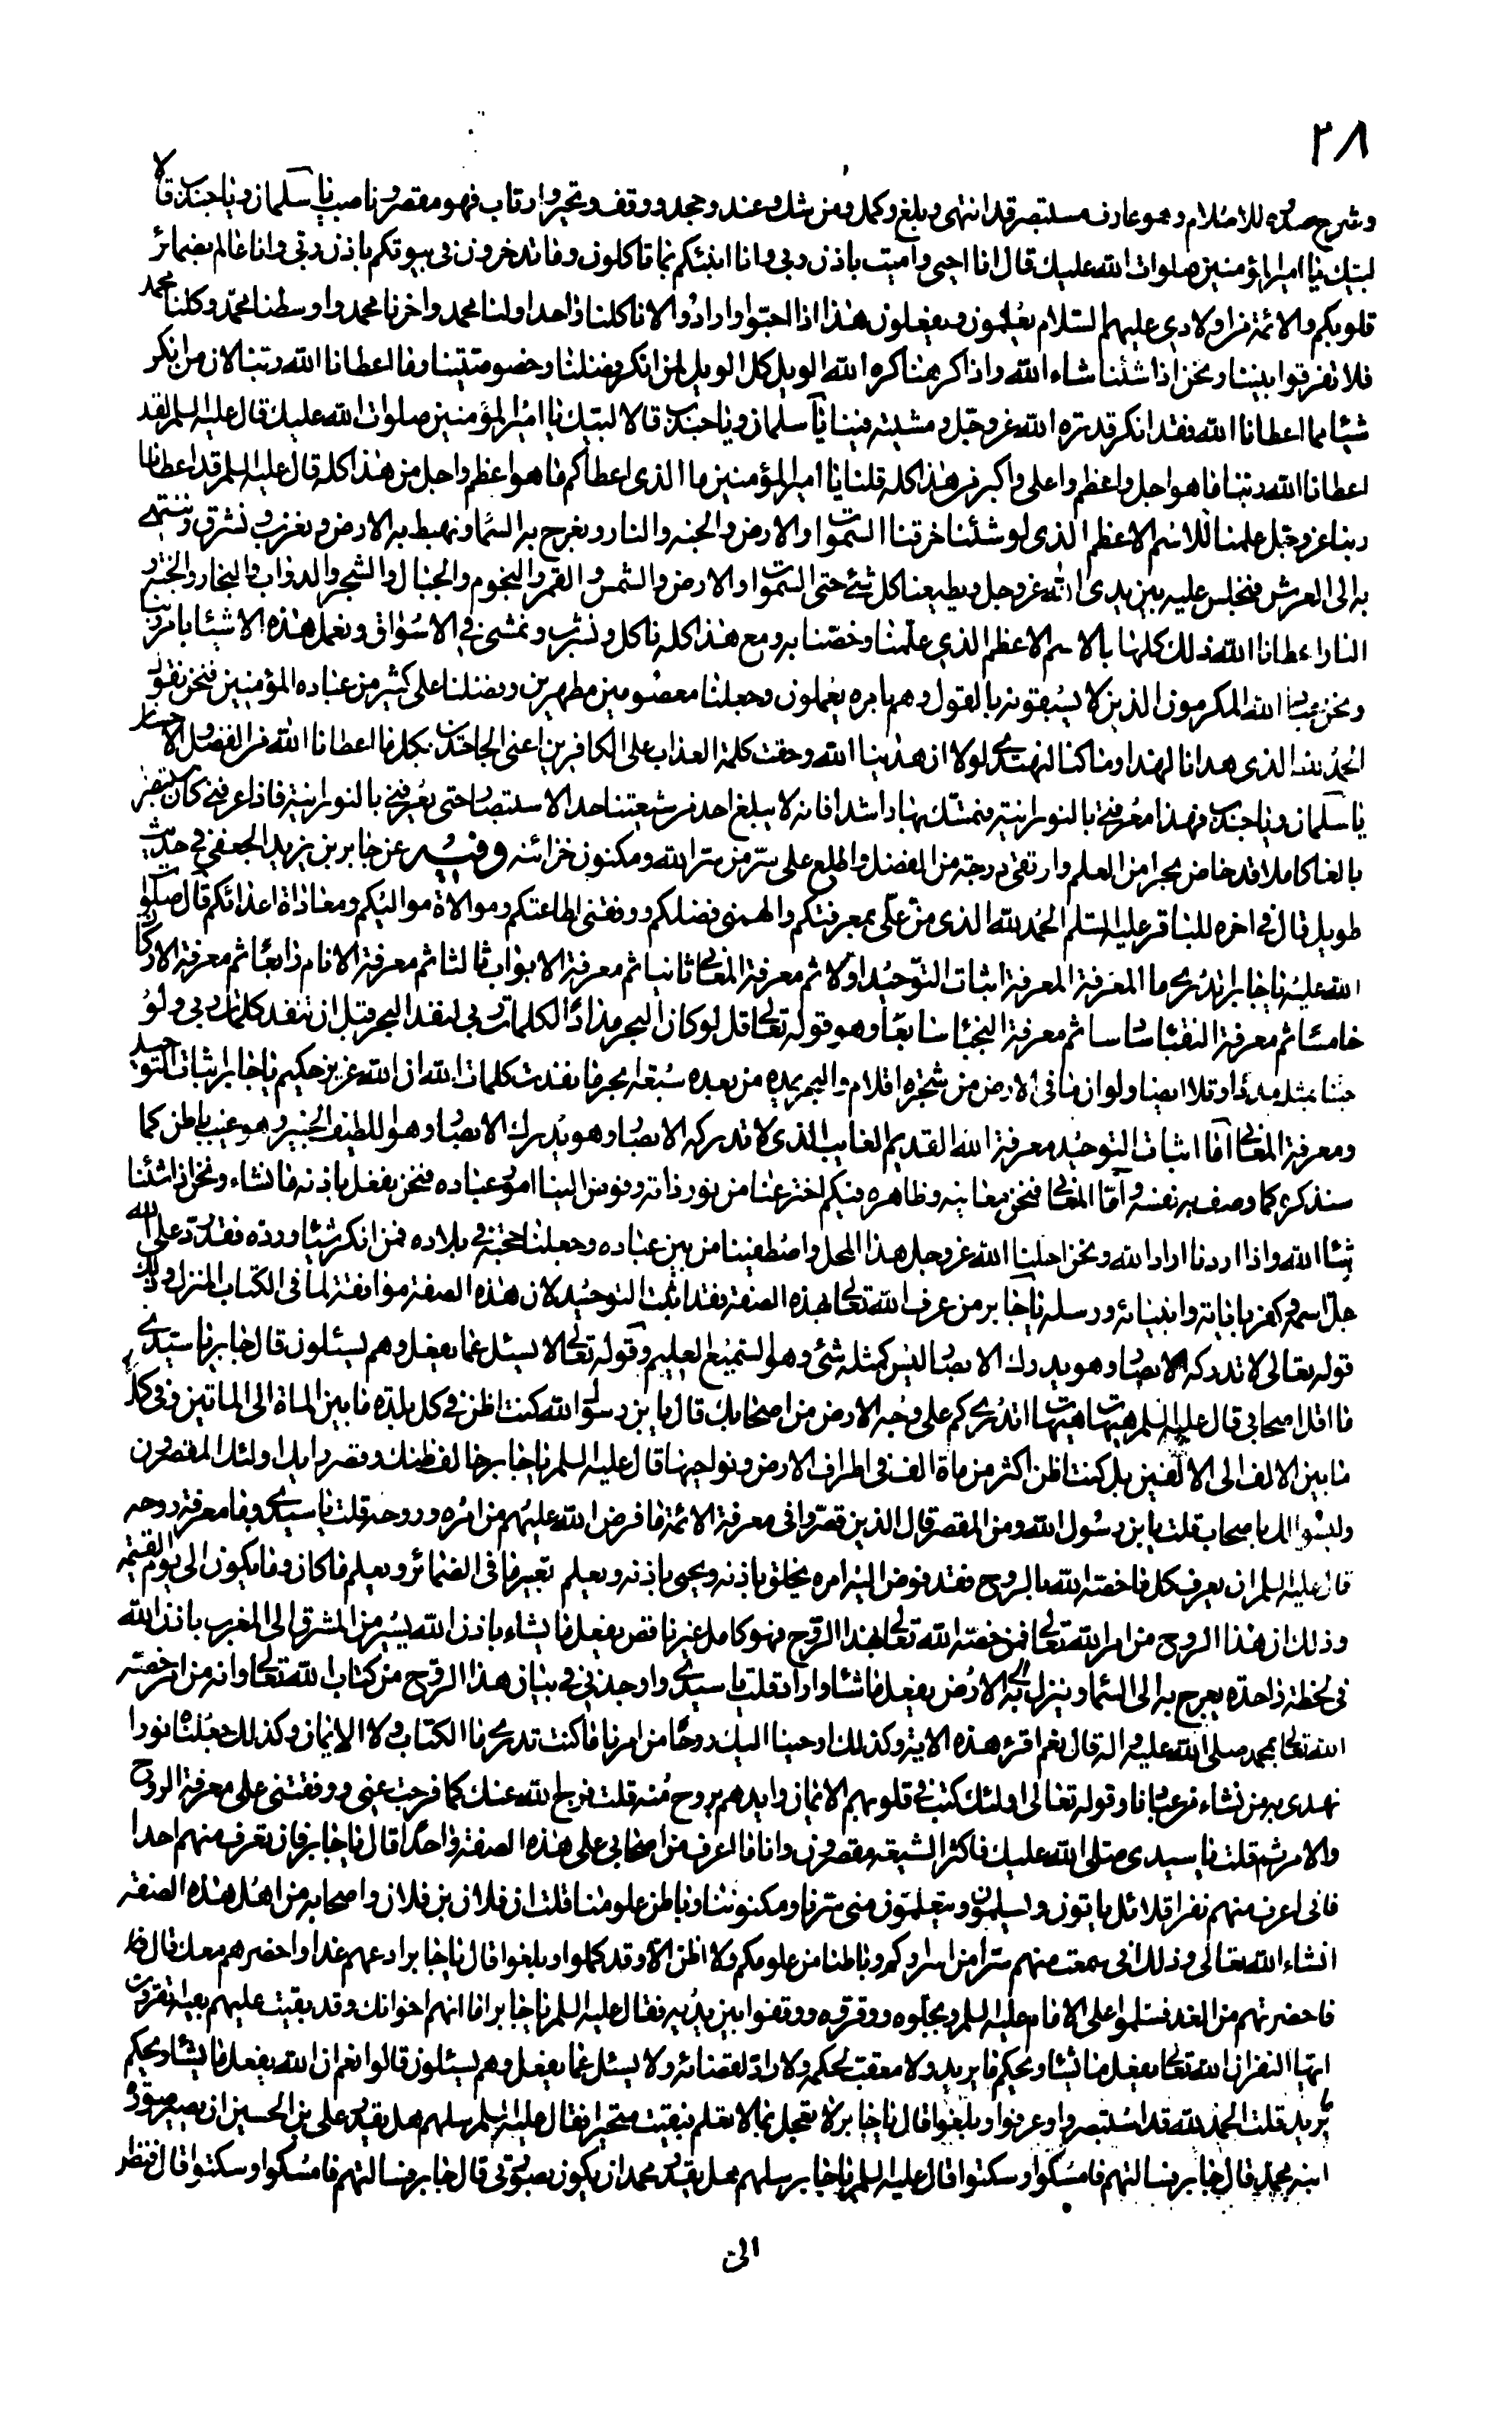 ٣٨
وشرح صدره للاسلام وهو عارف مستبصر قد انتهى وبلغ وكمل ومن شك وعند وجحد ووقف وتحير وارتاب فهو مقصر وناصب يا سلمان ويا جندب قالا
لبيك يا امير المؤمنين صلوات الله عليك قال انا احيى واميت باذن ربى وانا انبئكم بما تاكلون وما تدخرون فى بيوتكم باذن ربى وانا عالم بضمائر
قلوبكم والائمة من اولادى عليهم السلام يعلمون ويفعلون هذا اذا احبوا وارادوا لانا كلنا واحد اولنا محمد واخرنا محمد واوسطنا محمد وكلنا محمد
فلا تفرقوا بيننا ونحن اذا شئنا شاء الله واذا كرهنا كره الله الويل كل الويل لمن انكر فضلنا وخصوصيتنا وما اعطانا الله ربنا لان من انكر
شيئا مما اعطانا الله فقد انكر قدرة الله عز وجل ومشيته فينا يا سلمان ويا جندب قالا لبيك يا امير المؤمنين صلوات الله عليك قال عليه السلم لقد
اعطانا الله ربنا ما هو اجل واعظم واعلى واكبر من هذا كله قلنا يا امير المؤمنين ما الذى اعطاكم ما هو اعظم واجل من هذا كله قال عليه السلم قد اعطانا
ربنا عز وجل علمنا للاسم الاعظم الذى لو شئنا خرقنا السموات والارض والجنه والنار ونعرج به السماء ونهبط به الارض ونغرب ونشرق وننتهى
به الى العرش فنجلس عليه بين يدى الله عز وجل ويطيعنا كل شئ حتى السموات والارض والشمس والقمر والنجوم والجبال والشجر والدواب والبحار والجنة و
النار اعطانا الله ذلك كله بالاسم الاعظم الذى علمنا وخصنا به ومع هذا كله ناكل ونشرب ونمشى فى الاسواق ونعمل هذه الاشياء بامر ربنا
ونحن عباد الله المكرمون الذين لا يسبقونه بالقول وهم بامره يعملون وجعلنا معصومين مطهرين وفضلنا على كثير من عباده المؤمنين فنحن نقول
الحمد لله الذى هدانا لهذا وما كنا لنهتدى لولا ان هدينا الله وحقت كلمة العذاب على الكافرين اعنى الجاحدين بكل ما اعطانا الله من الفضل والاحسان
يا سلمان ويا جندب فهذا معرفتى بالنورانية فتمسك بها راشدا فانه لا يبلغ احد من شيعتنا حد الاستبصار حتى يعرفنى بالنورانية فاذا عرفنى كان مستبصرا
بالغا كاملا قد خاض بحرا من العلم وارتقى درجة من الفضل واطلع على سر من سر الله ومكنون خزائنه وفيه عن جابر بن يزيد الجعفى فى حديث
طويل قال فى اخره للباقر عليه السلم الحمد لله الذى من على بمعرفتكم والهمنى فضلكم ووفقنى لطاعتكم وموالاة مواليكم ومعاداة اعدائكم قال صلوات
الله عليه يا جابر اتدرى ما المعرفة المعرفة اثبات التوحيد اولا ثم معرفة المعانى ثانيا ثم معرفة الابواب ثالثا ثم معرفة الانام رابعا ثم معرفة الاركان
خامسا ثم معرفة النقباء سادسا ثم معرفة النجباء سابعا وهو قوله تعالى قل لو كان البحر مدادا لكلمات ربى لنفد البحر قبل ان تنفد كلمات ربى ولو
جئنا بمثله مددا وتلا ايضا ولو ان ما فى الارض من شجرة اقلام والبحر يمده من بعده سبعة ابحر ما نفدت كلمات الله ان الله عزيز حكيم يا جابر اثبات التوحيد
ومعرفة المعانى اما اثبات التوحيد معرفة الله القديم الغايب الذى لا تدركه الابصار وهو يدرك الابصار وهو اللطيف الخبير وهو غيب باطن كما
سنذكره كما وصف به نفسه واما المعانى فنحن معانيه وظاهره فيكم اخترعنا من نور ذاته وفوض الينا امور عباده فنحن نفعل باذنه ما نشاء ونحن اذا شئنا
شاء الله واذا اردنا اراد الله ونحن احلنا الله عز وجل هذا المحل واصطفينا من بين عباده وجعلنا حجته فى بلاده فمن انكر شيئا ورده فقد رد على الله
جل اسمه وكفر باياته وانبيائه ورسله يا جابر من عرف الله تعالى بهذه الصفة فقد اثبت التوحيد لان هذه الصفة موافقة لما فى الكتاب المنزل وذلك
قوله تعالى لا تدركه الابصار وهو يدرك الابصار ليس كمثله شئ وهو السميع العليم وقوله تعالى لا يسئل عما يفعل وهم يسئلون قال جابر يا سيدى
ما اقل اصحابى قال عليه السلم هيهات هيهات اتدرى كم على وجه الارض من اصحابك قال يا بن رسول الله كنت اظن فى كل بلدة ما بين الماة الى الماتين وفى كل
ما بين الالف الى الالفين بل كنت اظن اكثر من ماة الف فى اطراف الارض ونواحيها قال عليه السلم يا جابر خالف ظنك وقصر رايك اولئك المقصرون
وليسوا لك باصحاب قلت يا بن رسول الله ومن المقصر قال الذين قصروا فى معرفة الائمة ما فرض الله عليهم من امره وروحه قلت يا سيدى وما معرفة روحه
قال عليه السلم ان يعرف كل ما خصه الله بالروح فقد فوض اليه امره يخلق باذنه ويحيى باذنه ويعلم تعبير ما فى الضمائر ويعلم ما كان وما يكون الى يوم القيمة
وذلك ان هذا الروح من امر الله تعالى فمن خصه الله تعالى بهذا الروح فهو كامل غير ناقص يفعل ما يشاء باذن الله يسير من المشرق الى المغرب باذن الله
فى لحظة واحدة يعرج به الى السماء وينزل به الى الارض يفعل ما شاء واراد قلت يا سيدى واوجدنى فى بيان هذا الروح من كتاب الله تعالى وانه من امر خصه
الله تعالى بمحمد صلى الله عليه واله قال نعم اقرء هذه الاية وكذلك اوحينا اليك روحا من امرنا ما كنت تدرى ما الكتاب ولا الايمان وكذلك جعلناه نورا
نهدى به من نشاء من عبادنا وقوله تعالى اولئك كتب فى قلوبهم الايمان وايدهم بروح منه قلت فرج الله عنك كما فرجت عنى ووفقتنى على معرفة الروح
والامر ثم قلت يا سيدى صلى الله عليك فاكثر الشيعة مقصرون وانا ما اعرف من اصحابى على هذه الصفة واحدا قال يا جابر فان تعرف منهم احدا
فانى اعرف منهم نفرا قلائل ياتون ويسلمون ويتعلمون منى سرنا ومكنوننا وباطن علومنا قلت ان فلان بن فلان واصحابه من اهل هذه الصفة
انشاء الله تعالى وذلك انى سمعت منهم سرا من اسراركم وباطنا من علومكم ولا اظن الا وقد كملوا وبلغوا قال يا جابر ادعهم غدا واحضرهم معك قال
فاحضرتهم من الغد فسلموا على الامام عليه السلم وبجلوه ووقروه ووقفوا بين يديه فقال عليه السلم يا جابر اما انهم اخوانك وقد بقيت عليهم بقية اتقرون
ايها النفر ان الله تعالى يفعل ما يشاء ويحكم ما يريد ولا معقب لحكمه ولا راد لقضائه ولا يسئل عما يفعل وهم يسئلون قالوا نعم ان الله يفعل ما يشاء ويحكم
ما يريد قلت الحمد لله قد استبصروا وعرفوا وبلغوا قال يا جابر لا تعجل بما لا تعلم فبقيت متحيرا فقال عليه السلم سلهم هل يقدر على بن الحسين ان يصير صورة
ابنه محمد قال جابر فسالتهم فامسكوا وسكتوا قال عليه السلم يا جابر سلهم هل يقدر محمد ان يكون بصورتى قال جابر فسالتهم فامسكوا وسكتوا قال فنظر
الى